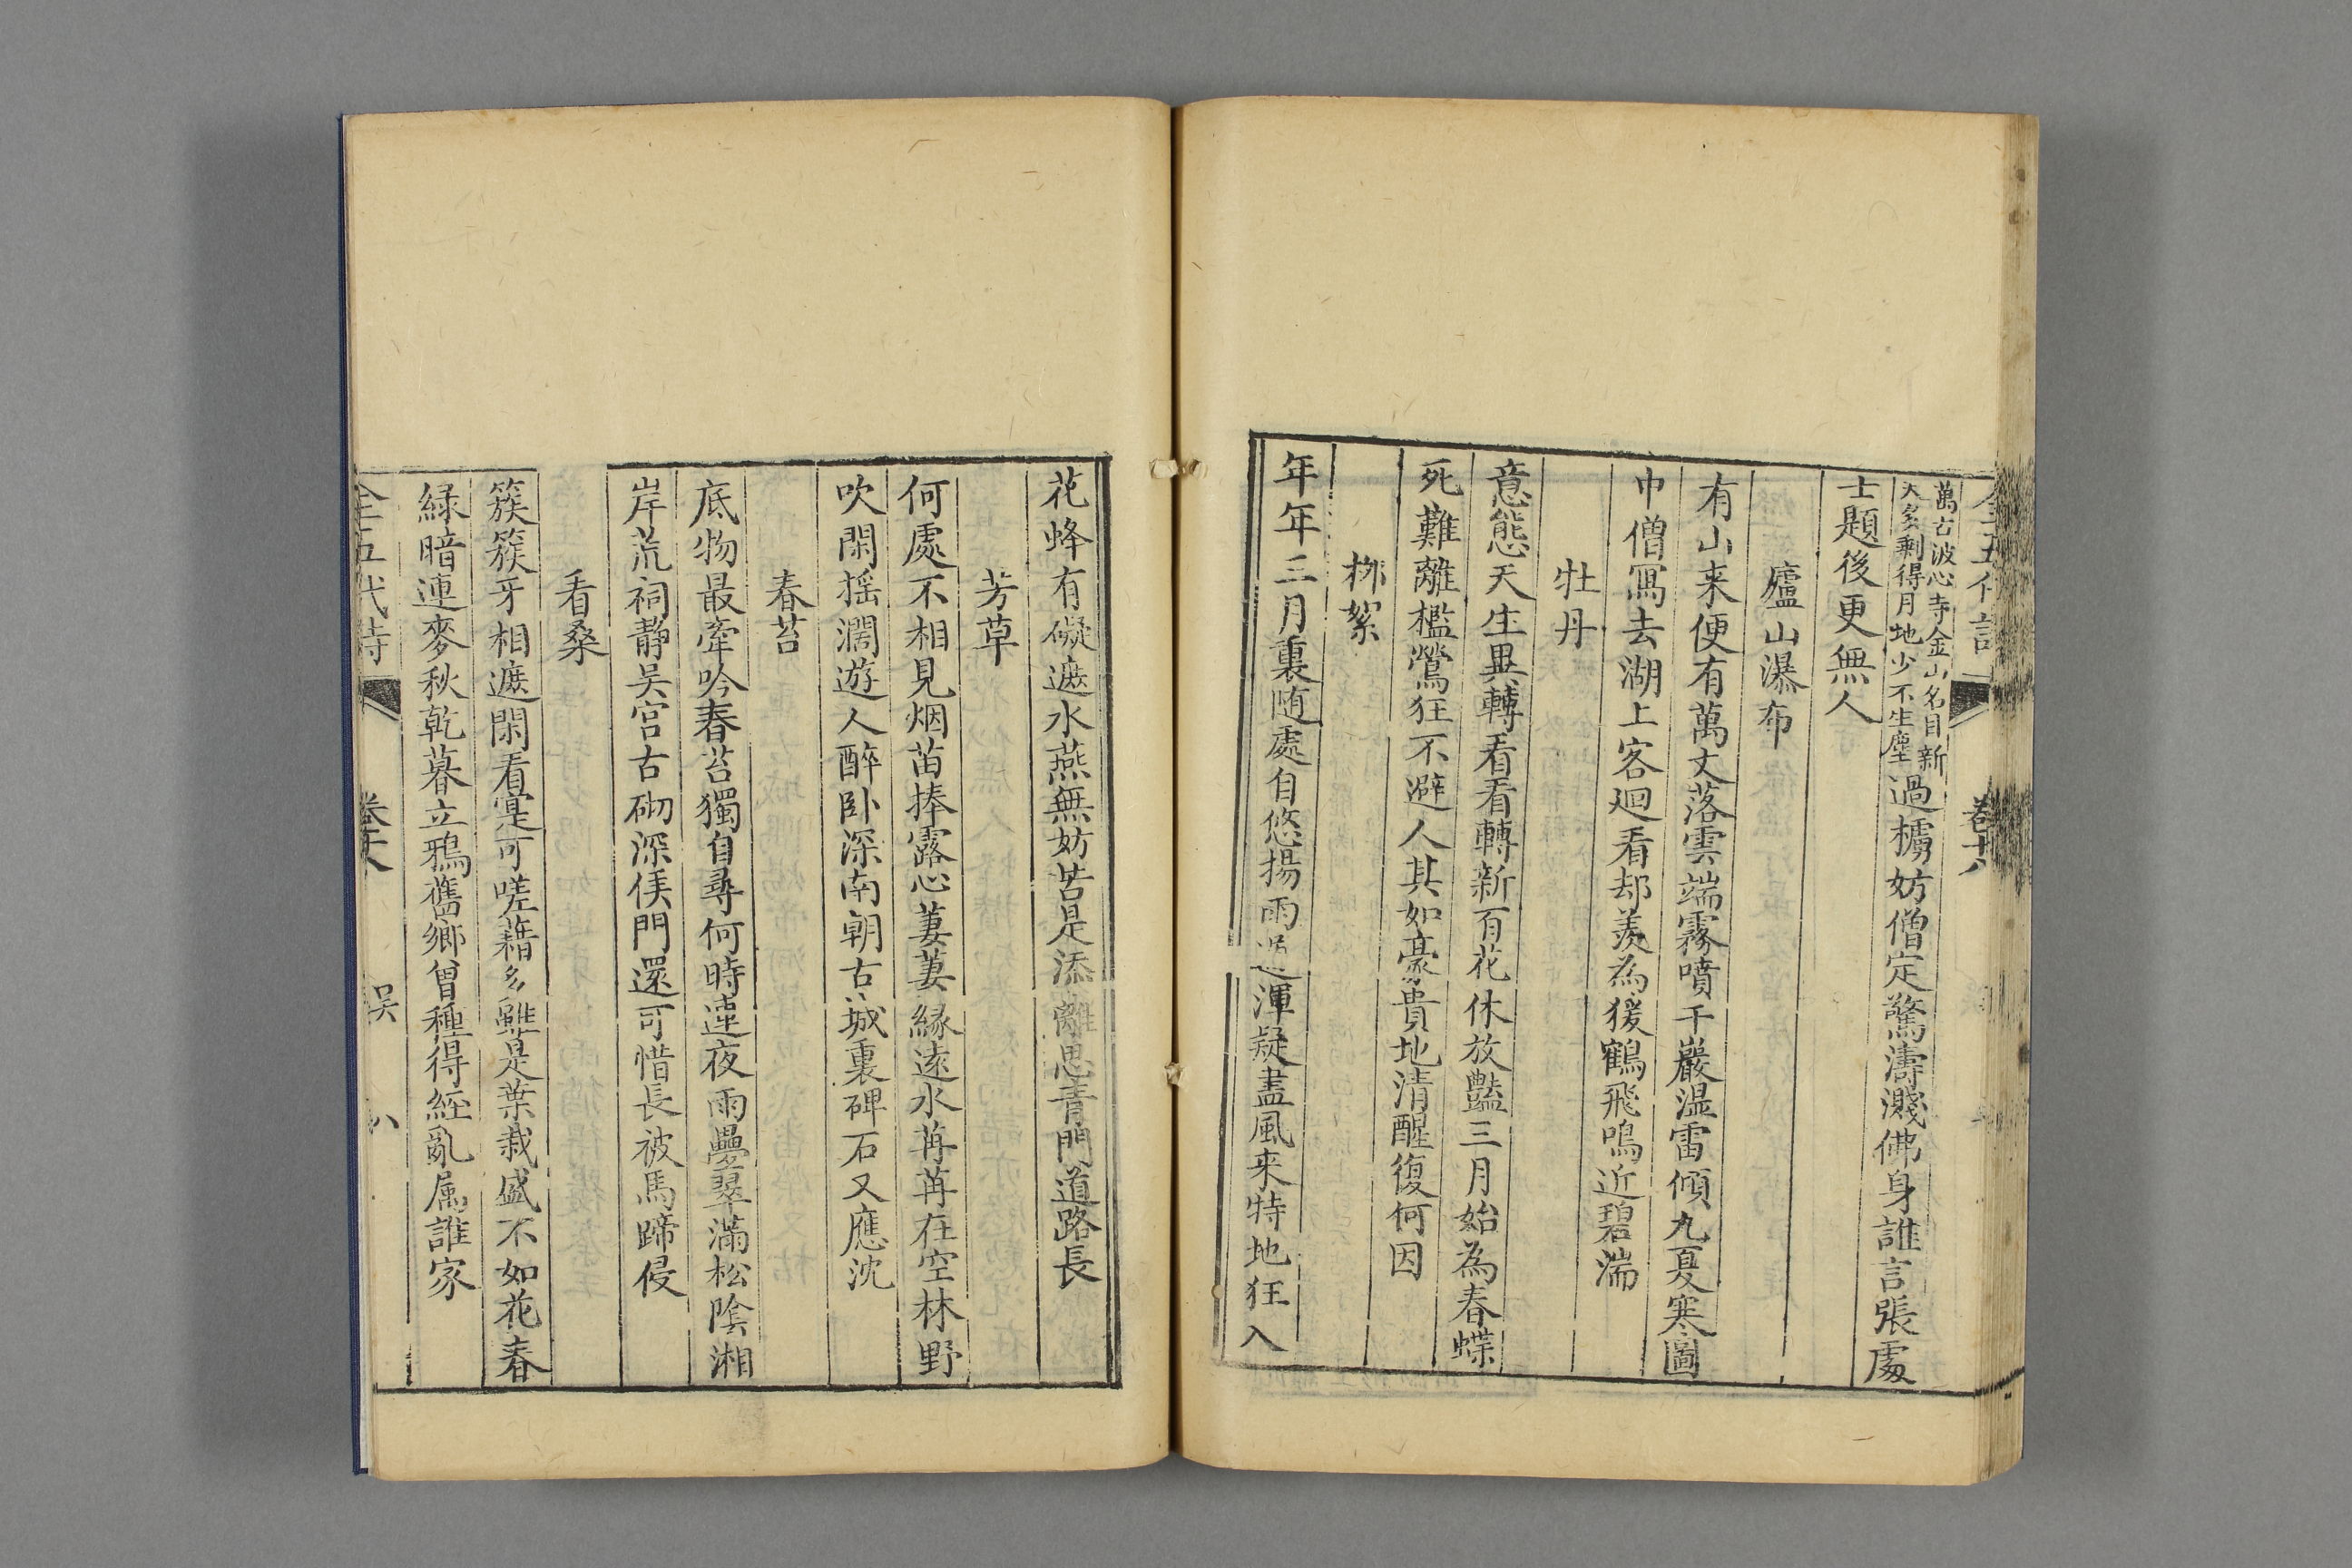 萬古波心寺金山名目新
天多剩得月地少不生塵
過櫓妨僧定驚濤濺佛身誰言張處
士題後更無人
廬山瀑布
有山来便有萬丈落雲端霧噴千巖溼雷傾九夏寒圖
中僧寫去湖上客迴看却羨為猨鶴飛鳴近碧湍
牡丹
意態天生異轉看看轉新百花休放豔三月始為春蝶
死難離檻鶯狂不避人其如豪貴地清醒復何因
柳絮
年年三月裏随處自悠揚雨過渾疑盡風来特地狂入
花蜂有礙遮水燕無妨告是添離思青門道路長
芳草
何處不相見烟苗捧露心萋萋緣遠水苒苒在空林野
吹閑摇濶遊人醉卧深南朝古城裏碑石又應沈
春苔
底物最牽吟春苔獨自尋何時連夜雨疊翠滿松陰湘
岸荒祠静吴宫古砌深侯門還可惜長被馬蹄侵
看桑
簇簇牙相遮閑看寔可嗟藉多雖是葉栽盛不如花春
緑暗連麥秋乾暮立鴉舊鄉曾種得經亂属誰家
全五代詩
卷十八
吴
八